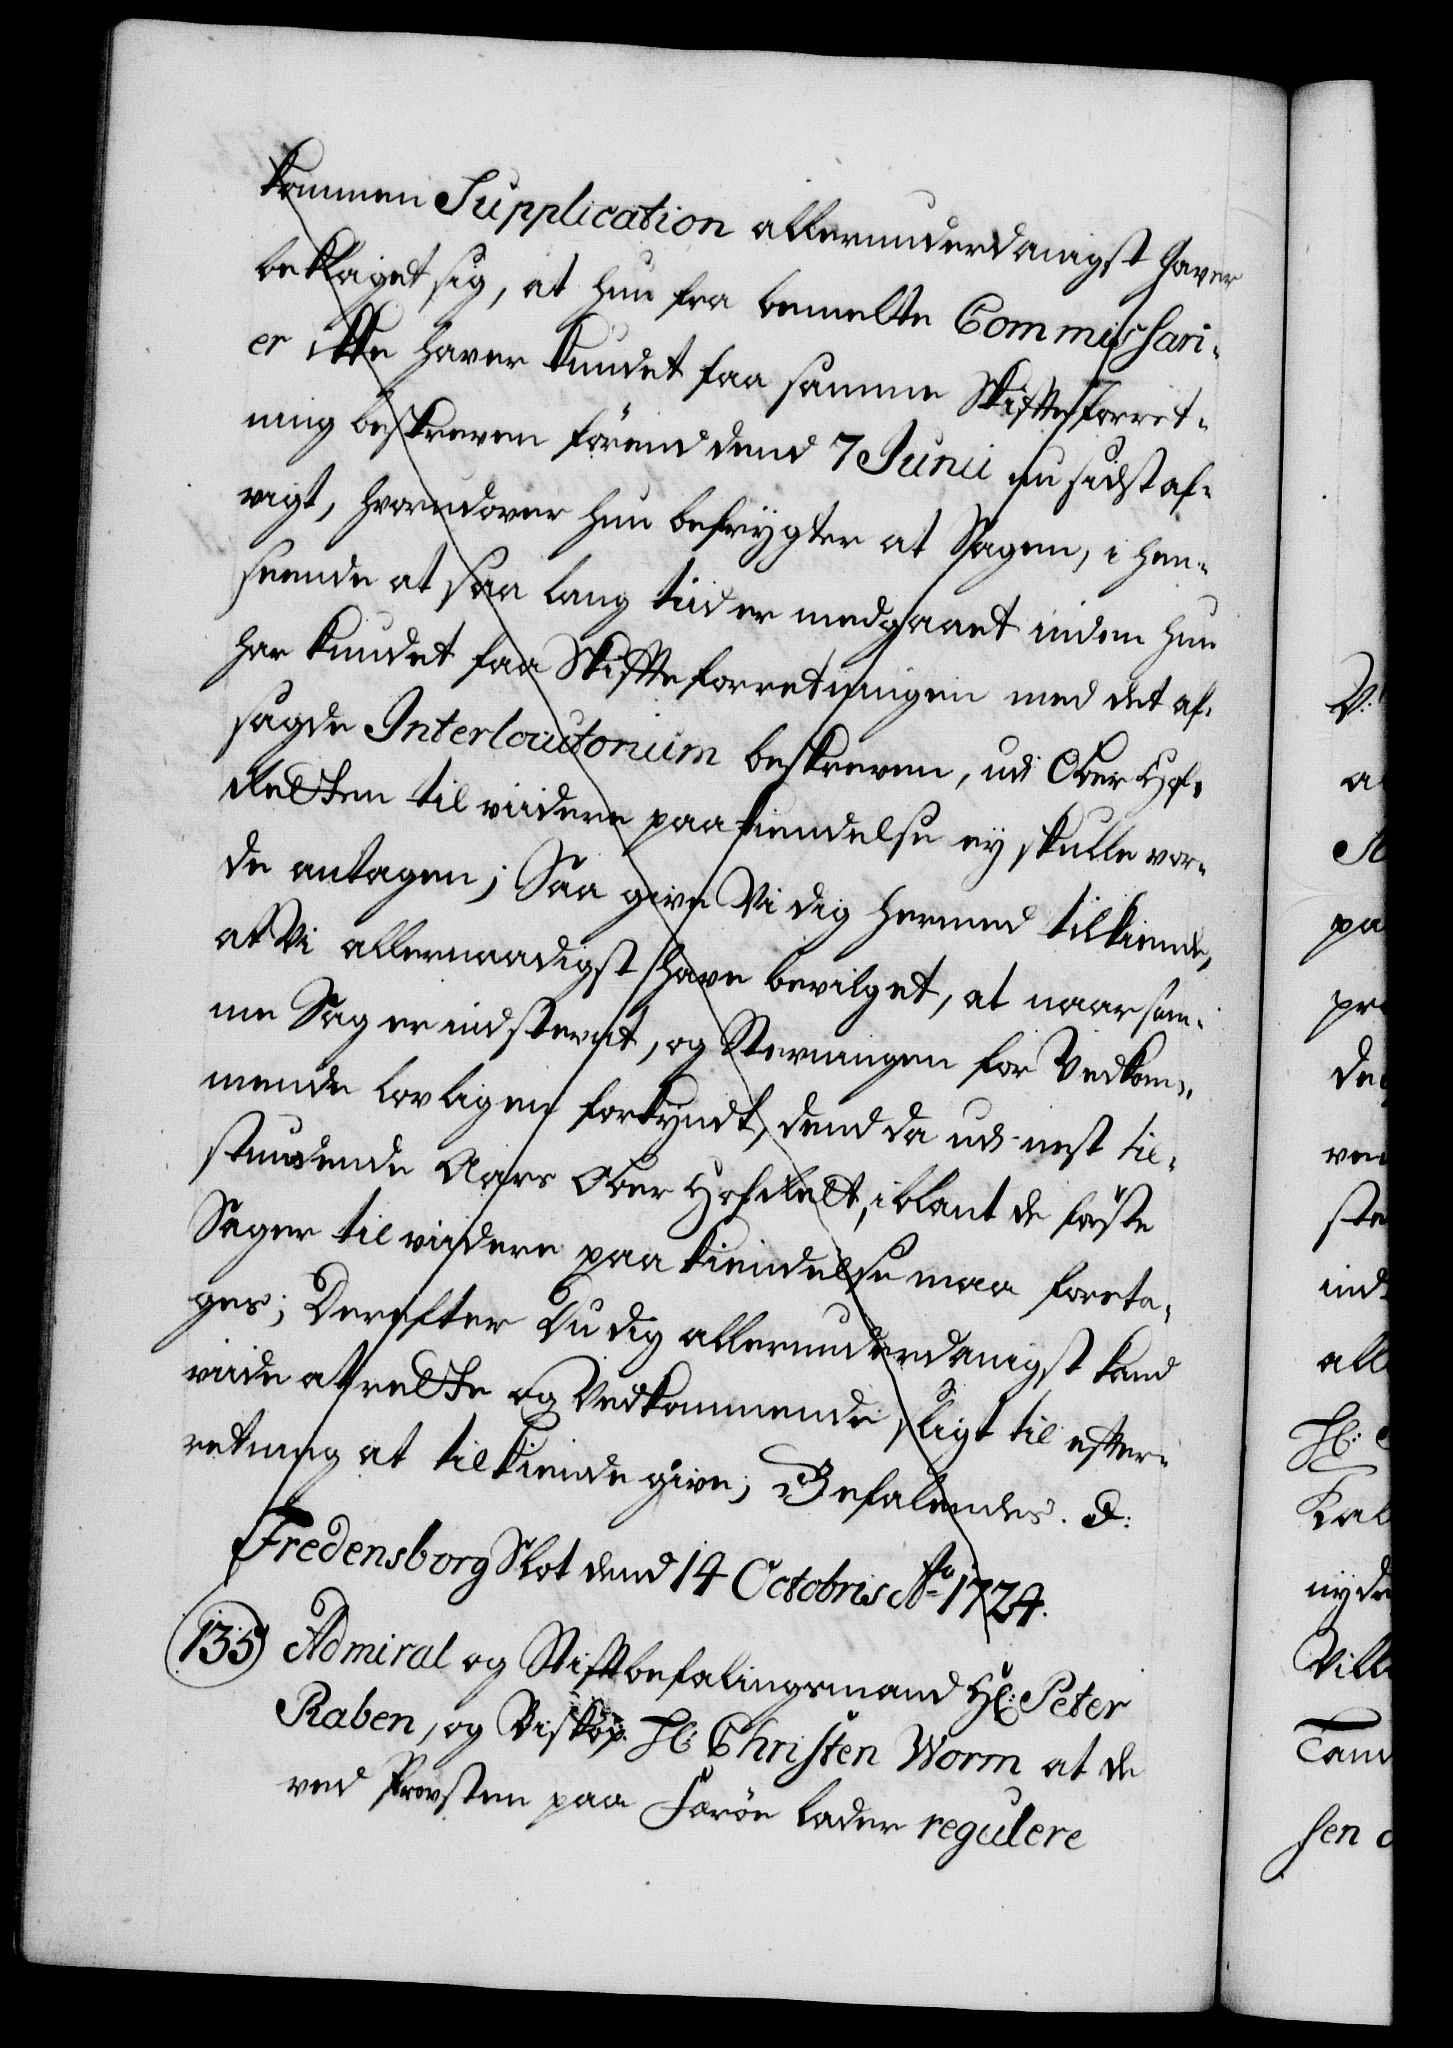 kommen Supplication allerunderdanigst haver
beklaget sig, at hun fra bemelte Commissari-
er ikke haver kundet faa samme Skifteforret-
ning beskreven förend dend 7 Junii nu sidst af-
vigt, hvorudover hun befrygter at Sagen, i hen-
seende at saa lang tiid er medgaaet inden hun
har kundet faa Skifteforretningen med det af-
sagde Interlocutorium beskreven, udi Ober Hof-
Retten til viidere paakiendelse ey skulle vor-
de antagen; Saa give Vi dig hermed tilkiende,
at Vi allernaadigst have bevilget, at naar sam-
me Sag er indstevnt, og Stevningen for Vedkom-
mende lovligen forkyndt, dend da udi nest til-
stundende Aars Ober HofRett, iblant de förste
Sager til viidere paakiendelse maa foreta-
ges; Derefter Du dig allerunderdanigst kand
viide at rette og Vedkommende sligt til efter-
retning at tilkiende give; Befalendes. D:
Fredensborg Slot dend 14 Octobris Ao 1724.
135) Admiral og Stiftbefalingsmand Hl: Peter
Raben, og Biskop Hl: Christen Worm at de
ved Provsten paa Færöe lader regulere